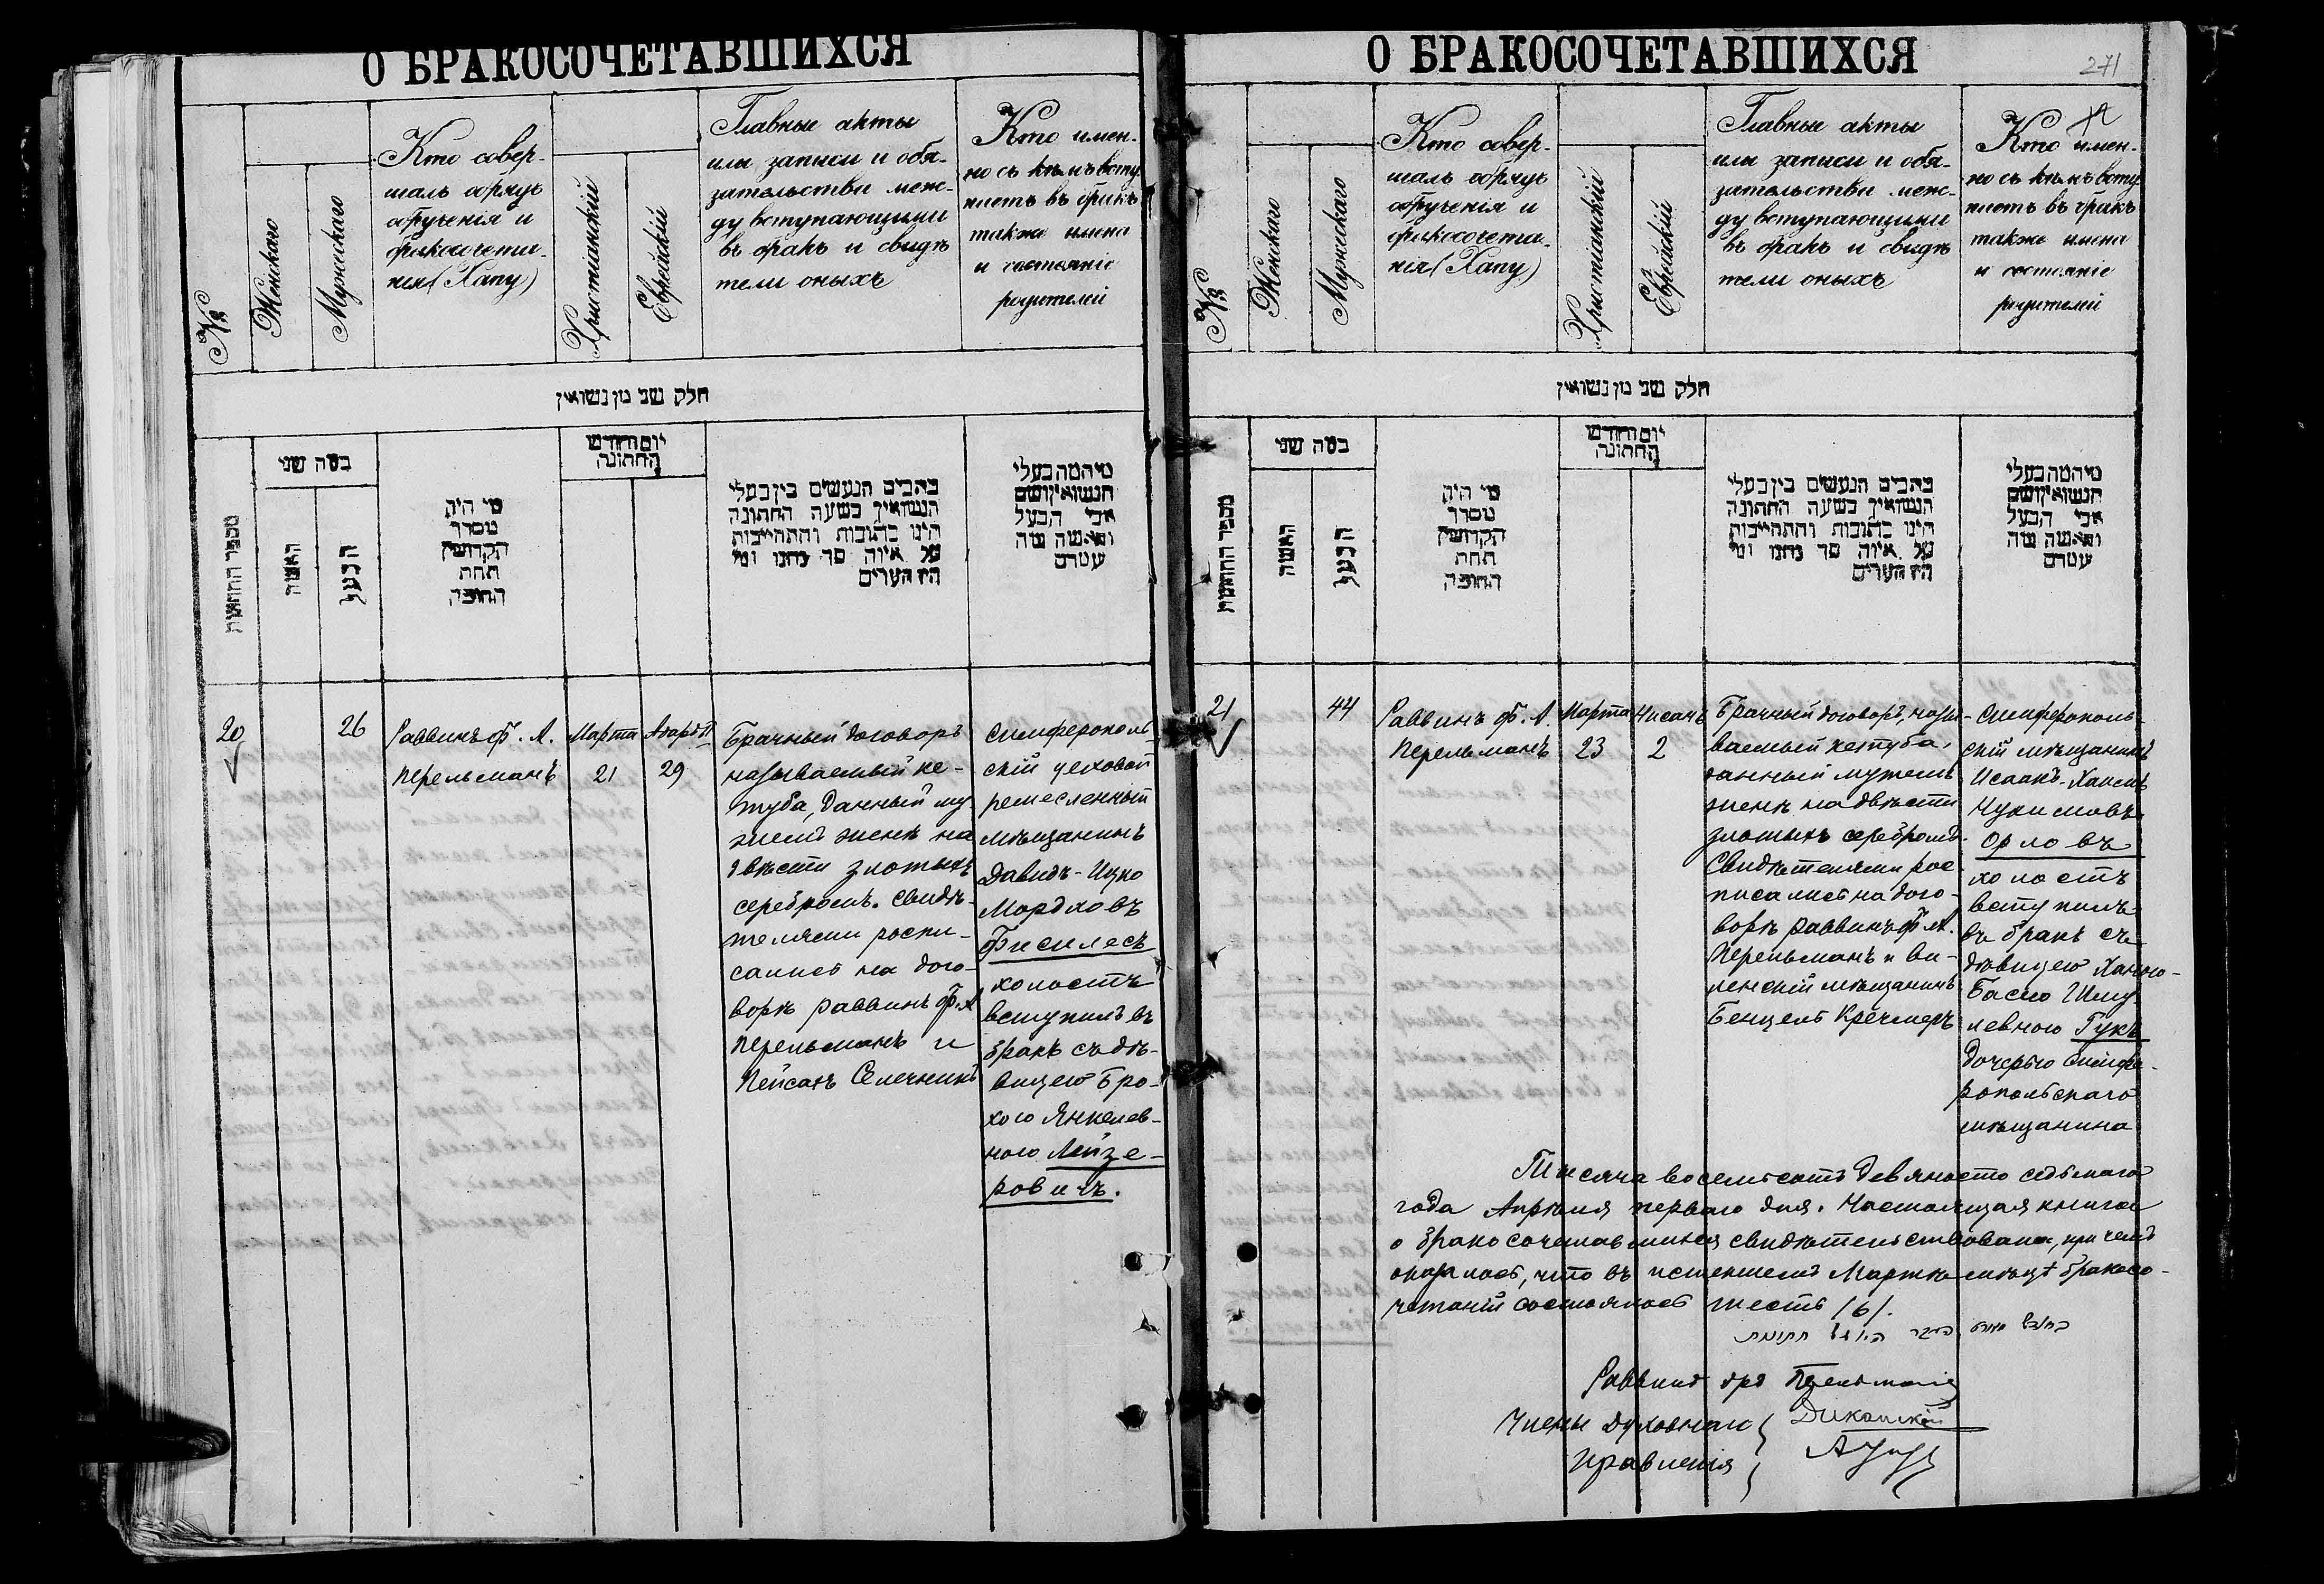 О БРАКОСОЧЕТАВШИХСЯ
№
Женскаго
Мужескаго
Кто совер-
шалъ обрядъ
обрученія и
бракосочета-
нія (Хапу)
Христіанскій
Еврейскій
Главные акты
или записи и обя-
зательства меж-
ду вступающими
въ бракъ и свидѣ
тели оныхъ
Кто имен-
но съ кѣмъ всту
паетъ въ бракъ
также имена
и состояніе
родителей
חלק שני מן נשואין
מספר החתונות
כמה שני
האשה
הבעל
מי היה
מסדר
הקדושין
תחת
החופה
יום וחודש
החתונה
כתבים הנעשים בין בעלי
הנשואין בשעה החתונה
היינו כתובות והתחייבות
על איזה סך נתנו ומי
היו העדים
מי המה בעלי
הנשואין ושם
אבי הבעל
והאשה מה
עטרם
20
26
Раввинъ Ф. Л.
Перельманъ
Марта
21
Адаръ II
29
Брачный договоръ
называемый ке-
туба, данный му-
жемъ женѣ на
двѣсти злотыхъ
серебромъ. Свидѣ-
телями роспи-
сались на дого-
ворѣ раввинъ Ф. Л
Перельманъ и
Пейсахъ Селечникъ
Симферополь
скій цеховой
ремесленный
мѣщанинъ
Давидъ-Ицко
Мордховъ
Фисилесъ
холостъ
вступилъ въ
бракъ съ дѣ-
вицею Бро-
хою Янкелев-
ною Лейзе-
ровичъ.
О БРАКОСОЧЕТАВШИХСЯ
271
№
Женскаго
Мужескаго
Кто совер-
шалъ обрядъ
обрученія и
бракосочета-
нія (Хапу)
Христіанскій
Еврейскій
Главные акты
или записи и обя-
зательства меж-
ду вступающими
въ бракъ и свидѣ
тели оныхъ
Кто имен-
но съ кѣмъ всту
паетъ въ бракъ
также имена
и состояніе
родителей
חלק שני מן נשואין
מספר החתונות
כמה שני
האשה
הבעל
מי היה
מסדר
הקדושין
תחת
החופה
יום וחודש
החתונה
כתבים הנעשים בין בעלי
הנשואין בשעה החתונה
היינו כתובות והתחייבות
על איזה סך נתנו ומי
היו העדים
מי המה בעלי
הנשואין ושם
אבי הבעל
והאשה מה
עטרם
21
44
Раввинъ Ф. Л.
Перельманъ
Марта
23
Нисанъ
2
Брачный договоръ, назы-
ваемый кетуба,
данный мужемъ
женѣ на двѣсти
злотыхъ серебромъ.
Свидѣтелями рос
писались на дого-
ворѣ раввинъ Ф. Л.
Перельманъ и Ви-
ленскій мѣщанинъ
Бенцель Кречмеръ
Симферополь-
скій мѣщанинъ
Исаакъ-Хаимъ
Нухимовъ
Орловъ
холостъ
вступилъ
въ бракъ съ
дѣвицею Ханою-
Басею Шму
левною Гукъ
дочерью симфе-
ропольскаго
мѣщанина
Тысяча восемьсотъ девяносто седьмаго
года Апрѣля перваго дня. Настоящая книга
о бракосочетавшихся свидѣтельствована, при чемъ
оказалось, что въ истекшемъ Мартѣ мѣсяцѣ бракосо-
четаній состоялось шесть /6/.
Раввинъ дръ Перельманъ
Члены духовнаго
правленія